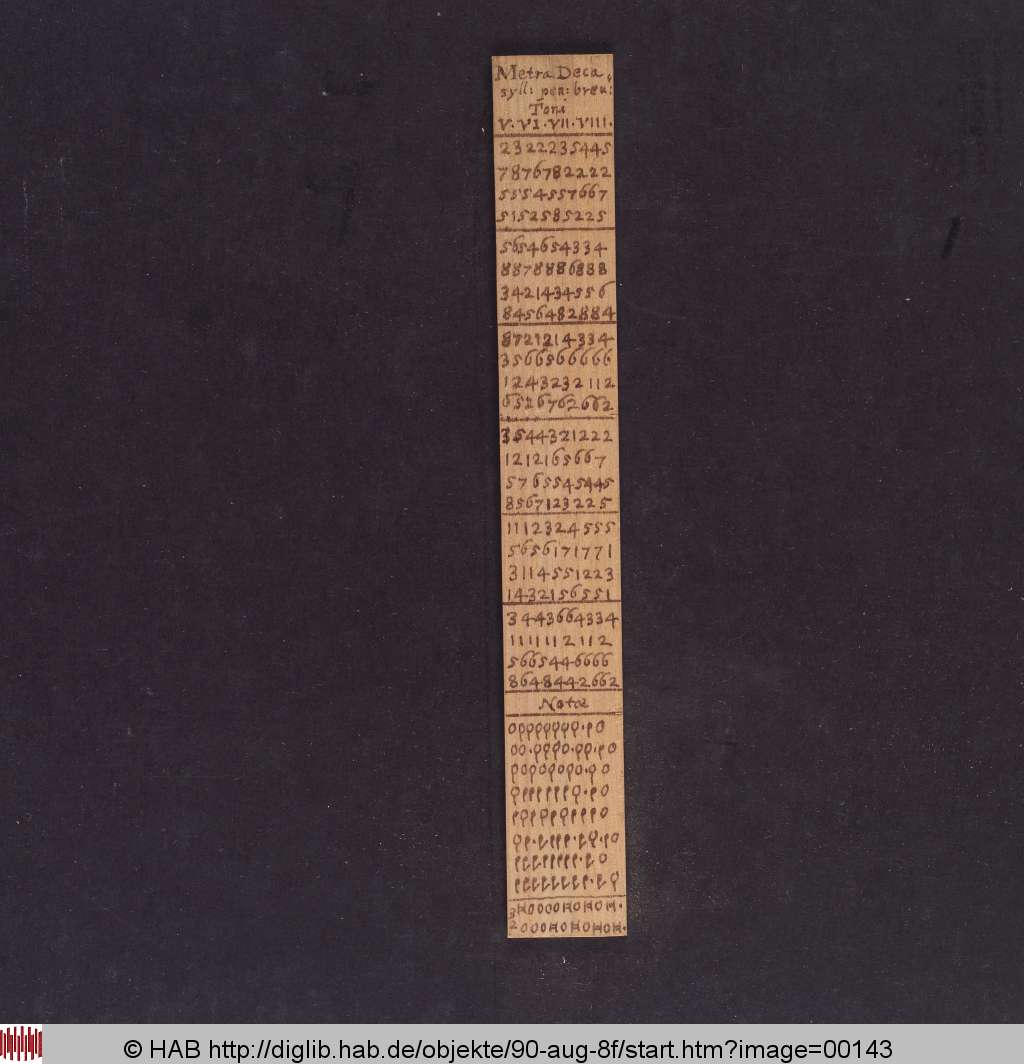 Metra Deca,
syll: pen: breu:
Toni
V. VI. VII. VIII.
2322235445
7876782222
5554557667
5152585225
5654654334
8878886888
3421434556
8456482884
8721214334
3566566666
1243232112
6526762662
3544321222
1212165667
5765545445
8567123225
1112324555
5656171771
3114551223
1432156551
3443664334
1111112112
5665446666
8648442662
Notæ
3
2
© HAB http://diglib.hab.de/objekte/90-aug-8f/start.htm?image=00143